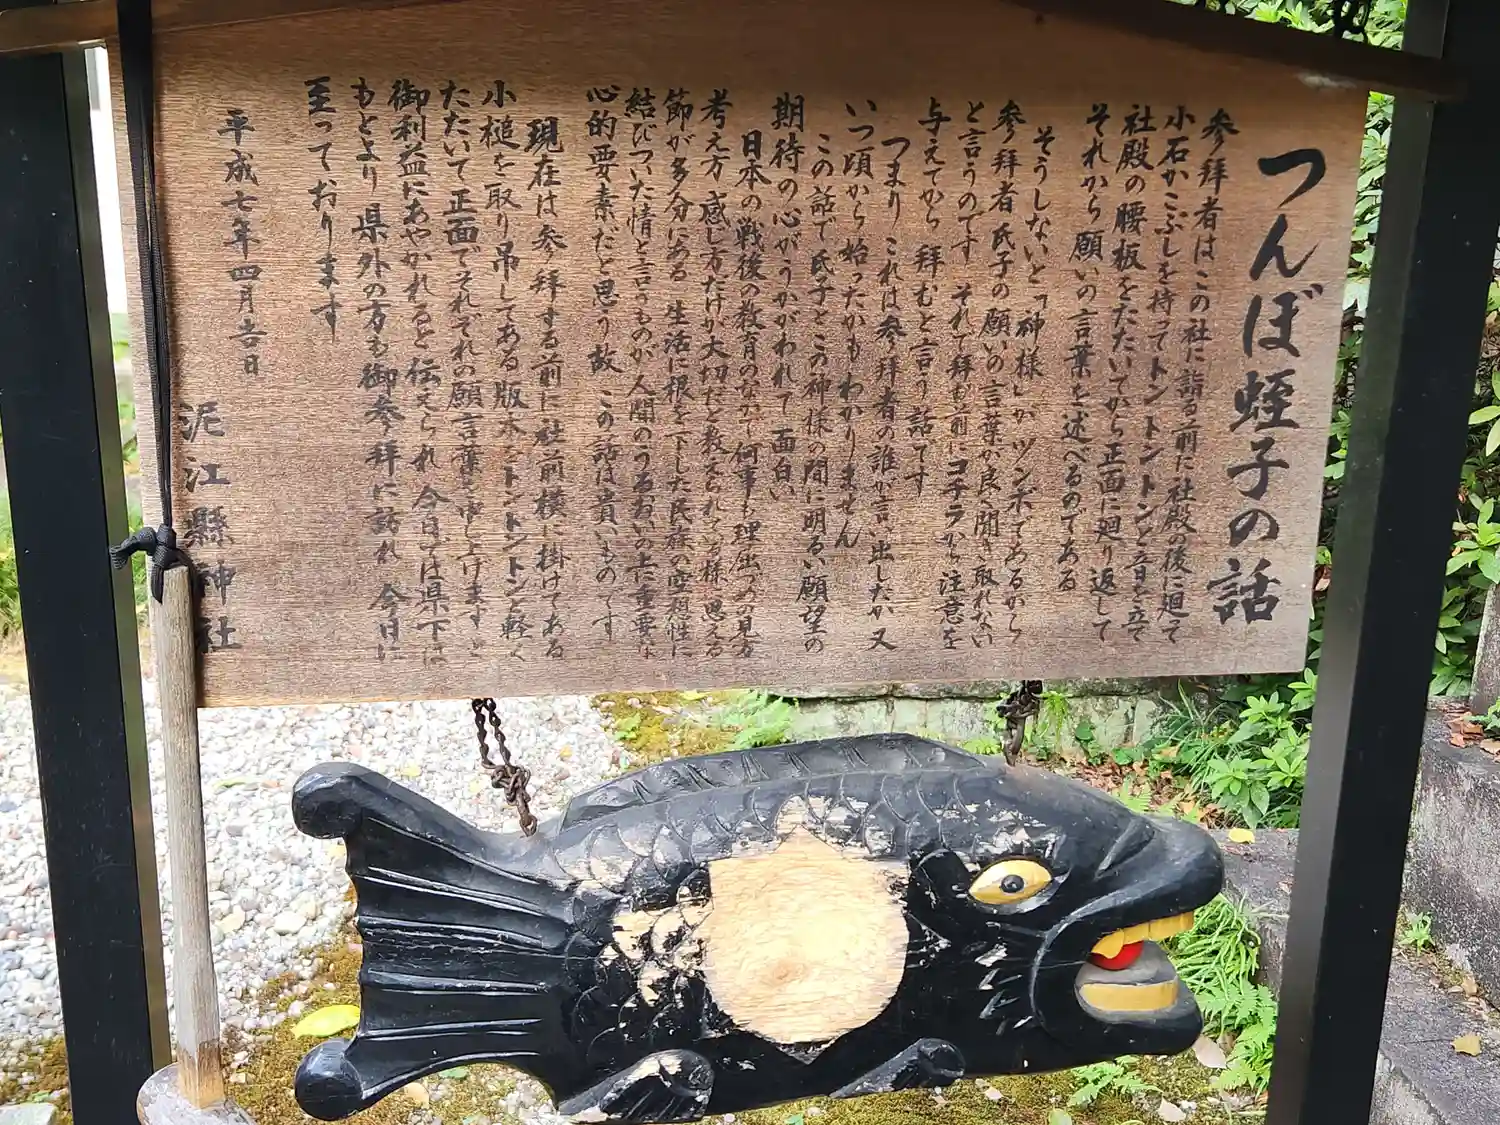 つんぼ蛭子の話
参拝者はこの社に詣る前に社殿の後に廻って
小石かこぶしを持ってトントントンと音を立て
社殿の腰板をたたいてから正面に廻り返して
それから願いの言葉を述べるのである
そうしないと「神様」がツンボであるから
参拝者氏子の願いの言葉が良く聞き取れない
と言うのです それで拝む前にコチラから注意を
与えてから 拝むと言う話です
つまり これは参拝者の誰が言い出したか又
いつ頃から始ったかもわかりません
この話で氏子とこの神様の間に明るい願望の
期待の心がうかがわれて 面白い
日本の戦後の教育のなかで 何事も理屈づめの見方
考え方 感じ方だけが大切だと教えられている様に思える
節が多分にある 生活に根を下した民族の空想性に
結びついた情と言うものが 人間のうるおいの上に重要な
心的要素だと思う故 この話は貴いものです
現在は参拝する前に社前横に掛けてある
小槌を取り吊してある版木をトントントンと軽く
たたいて正面でそれぞれの願言葉を申し上げますと
御利益にあやかれると伝えられ 今日では県下は
もとより県外の方も御参拝に訪れ 今日に
至っております
平成七年四月吉日
泥江縣神社